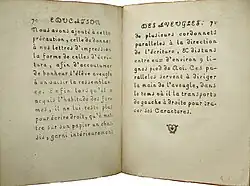 70 EDUCATION
Nous avons ajouté à cette
précaution, celle de donner
à nos lettres d'impression
la forme de celles d'écri-
ture, afin d'accoutumer
de bonne heure l'élève aveugle
à en saisir la ressemblan-
ce. Enfin lors qu'il a
acquis l'habitude des for-
mes, il ne lui reste plus
pour écrire droit, qu'à met-
tre sur son papier un chas-
sis, garni intérieurement
DES AVEUGLES. 71
de plusieurs cordonnets
paralleles à la direction
de l'écriture, & distans
entre eux d'environ 9 li-
gnes pied de Roi. Ces pa-
ralleles servent à diriger
la main de l'aveugle, dans
le tems où il la transporte
de gauche à droite pour tra-
cer ses Caracteres.